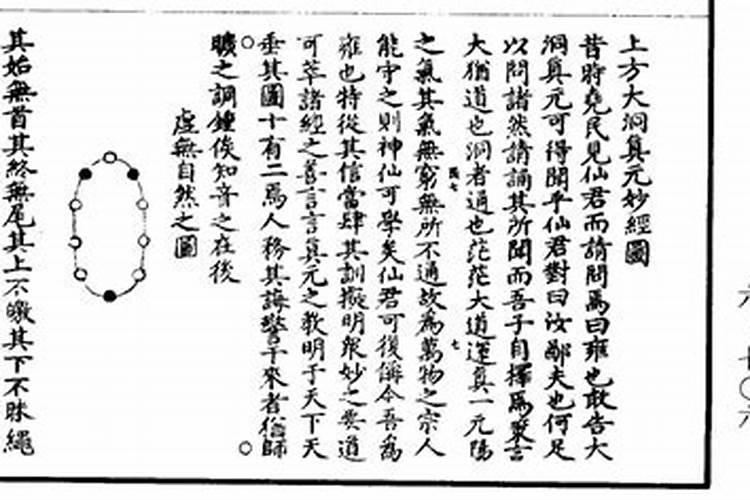 上方大洞真元妙經圖
昔時堯民見仙君而請問焉曰雍也敢告大
洞真元可得聞乎仙君對曰汝鄙夫也何足
以問諸然請誦其所聞而吾子自擇焉聚言
大猶道也洞者通也茫茫大道運真一元陽
之氣其氣無窮無所不通故為萬物之宗人
能守之則神仙可學矣仙君可復備令吾為
雍也特從其信當肆其訓擬明眾妙之要道
可萃諸經之善言言真元之教明于天下天
垂其圖十有二焉人務其誨警于來者猶師
曠之調鐘俟知音之在後
虛無自然之圖
其始無首其終無尾其上不皦其下不昧繩